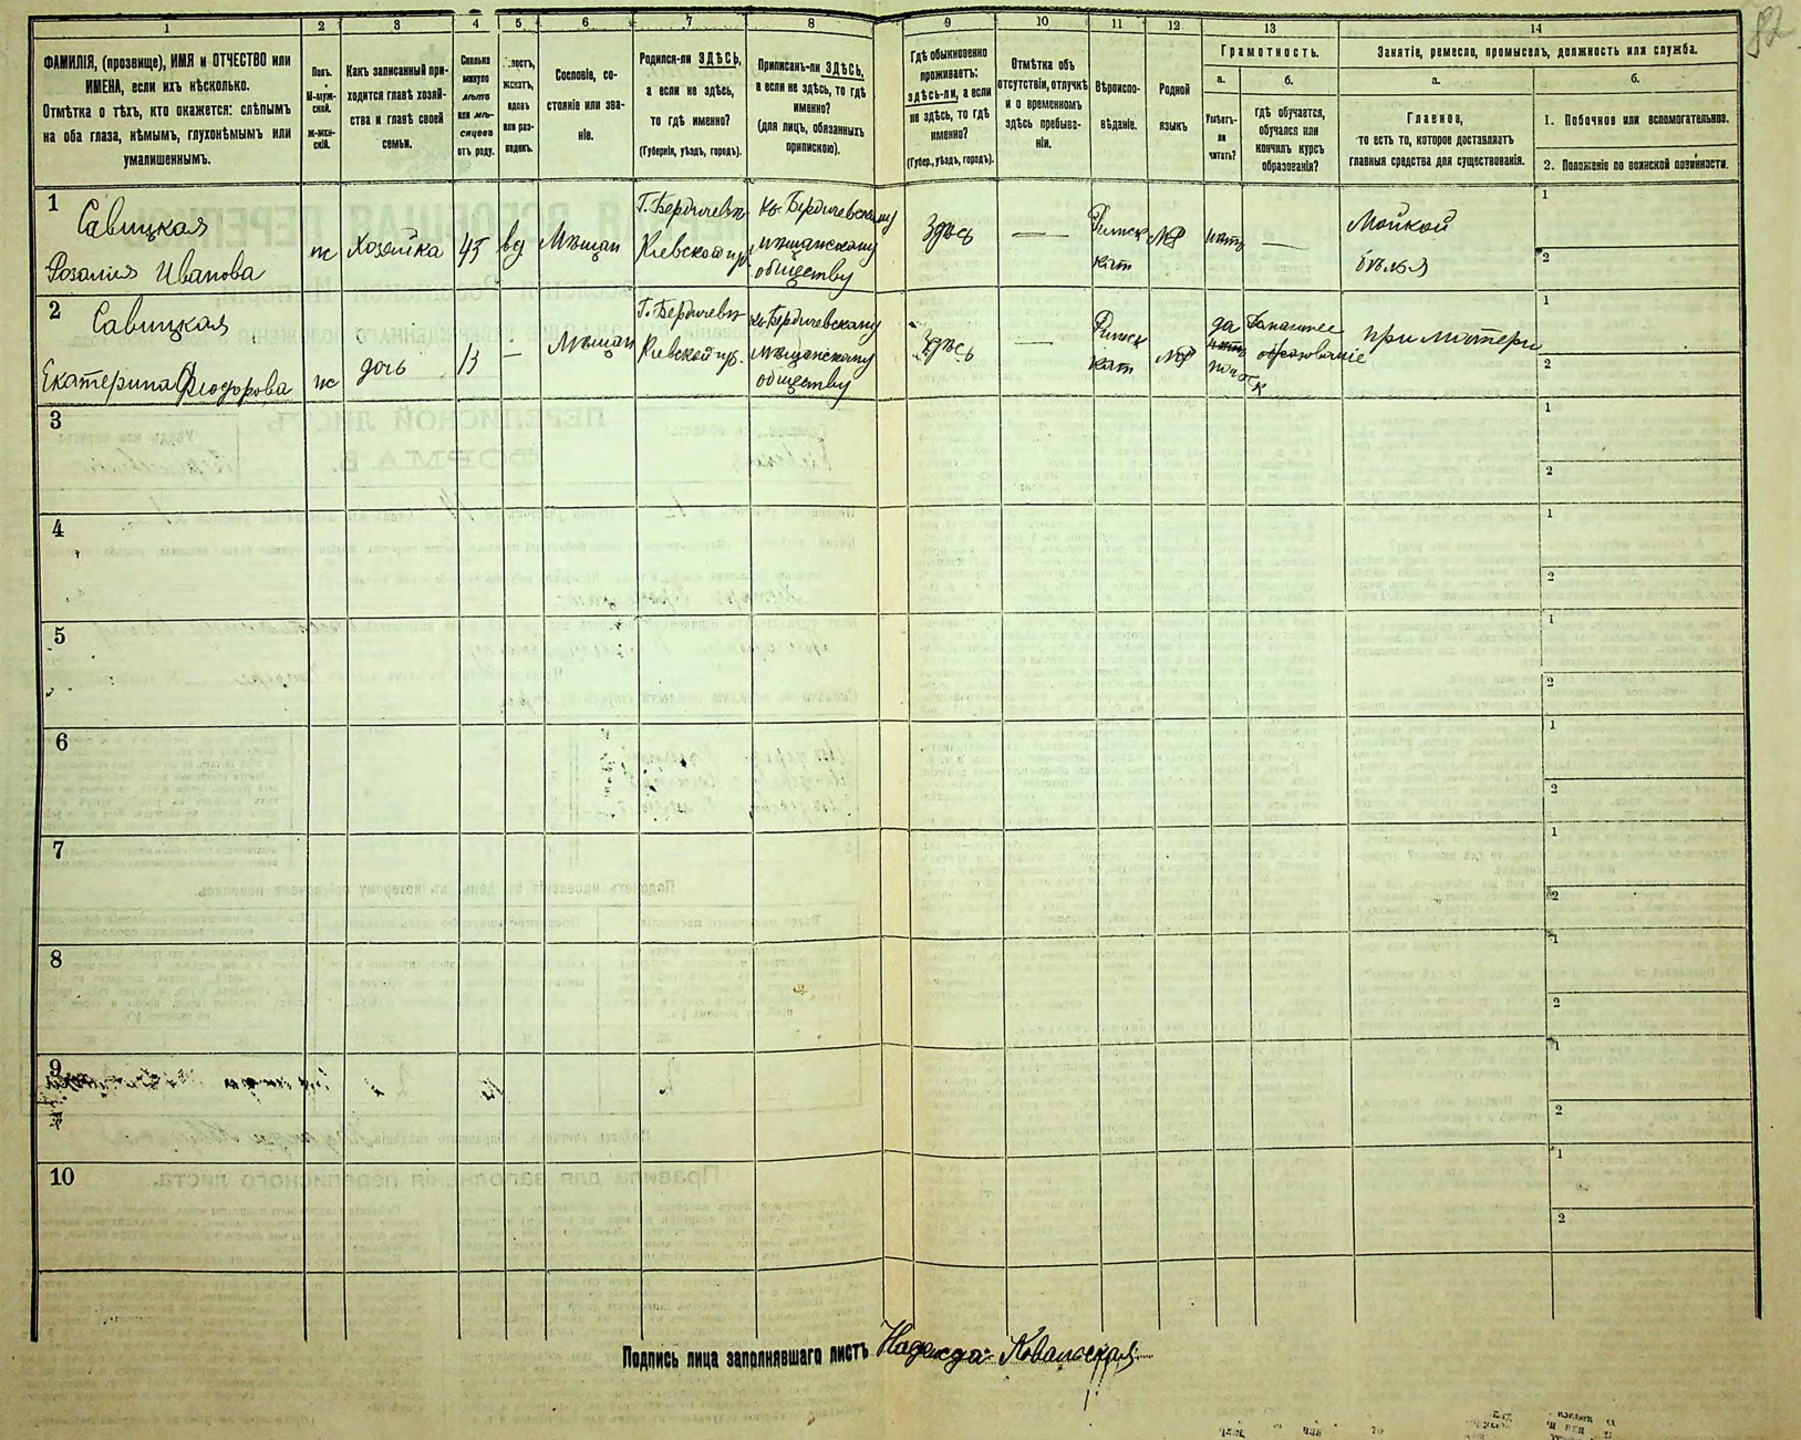 82
1 2 3 4 5 6 7 8 9 10 11 12 13 14
ФАМИЛІЯ, (прозвище), ИМЯ и ОТЧЕСТВО или
ИМЕНА, если ихъ нѣсколько.
Отмѣтка о тѣхъ, кто окажется: слѣпымъ
на оба глаза, нѣмымъ, глухонѣмымъ или
умалишеннымъ.
Полъ.
М-муж-
ской.
ж-жен-
скій.
Какъ записанный при-
ходится главѣ хозяй-
ства и главѣ своей
семьи.
Сколько
минуло
лѣтъ
или мѣ-
сяцевъ
отъ роду.
женатъ,
вдовъ
или раз-
веденъ.
Сословіе, со-
стояніе или зва-
ніе.
Родился-ли ЗДѢСЬ,
а если не здѣсь,
то гдѣ именно?
(Губернія, уѣздъ, городъ).
Приписанъ-ли ЗДѢСЬ,
а если не здѣсь, то гдѣ
именно?
(для лицъ, обязанныхъ
припискою).
Гдѣ обыкновенно
проживаетъ:
здѣсь-ли, а если
не здѣсь, то гдѣ
именно?
(Губер., уѣздъ, городъ).
Отмѣтка объ
отсутствіи, отлучкѣ
и о временномъ
здѣсь пребыва-
ніи.
Вѣроиспо-
вѣданіе.
Родной
языкъ
Грамотность.
а.
Умѣетъ-
ли
читать?
б.
гдѣ обучается,
обучался или
кончилъ курсъ
образованія?
Занятіе, ремесло, промыселъ, должность или служба.
а.
Главное,
то есть то, которое доставляетъ
главныя средства для существованія.
б.
1. Побочное или вспомогательное.
2. Положеніе по воинской повинности.
1
Савицкая
Розалия Иванова
ж
Хозяйка
45
вд
Мѣщан
Г. Бердичевъ
Кіевской гу.
къ Бердичевскому
мѣщанскому
обществу
Здѣсь
—
Римск
кат
нѣтъ
—
Мойкой
бѣлья
1
2
2
Савицкая
Екатерина Феодорова
ж
дочь
13
—
Мѣщан
Г. Бердичевъ
Кіевской гу.
къ Бердичевскому
мѣщанскому
обществу
Здѣсь
—
Римск
кат
да
нѣтъ
Домашнее
образованіе
при матери
1
2
3
1
2
4
1
2
5
1
2
6
1
2
7
1
2
8
1
2
9
1
2
10
1
2
Подпись лица заполнявшаго листъ Надежда Ковальская